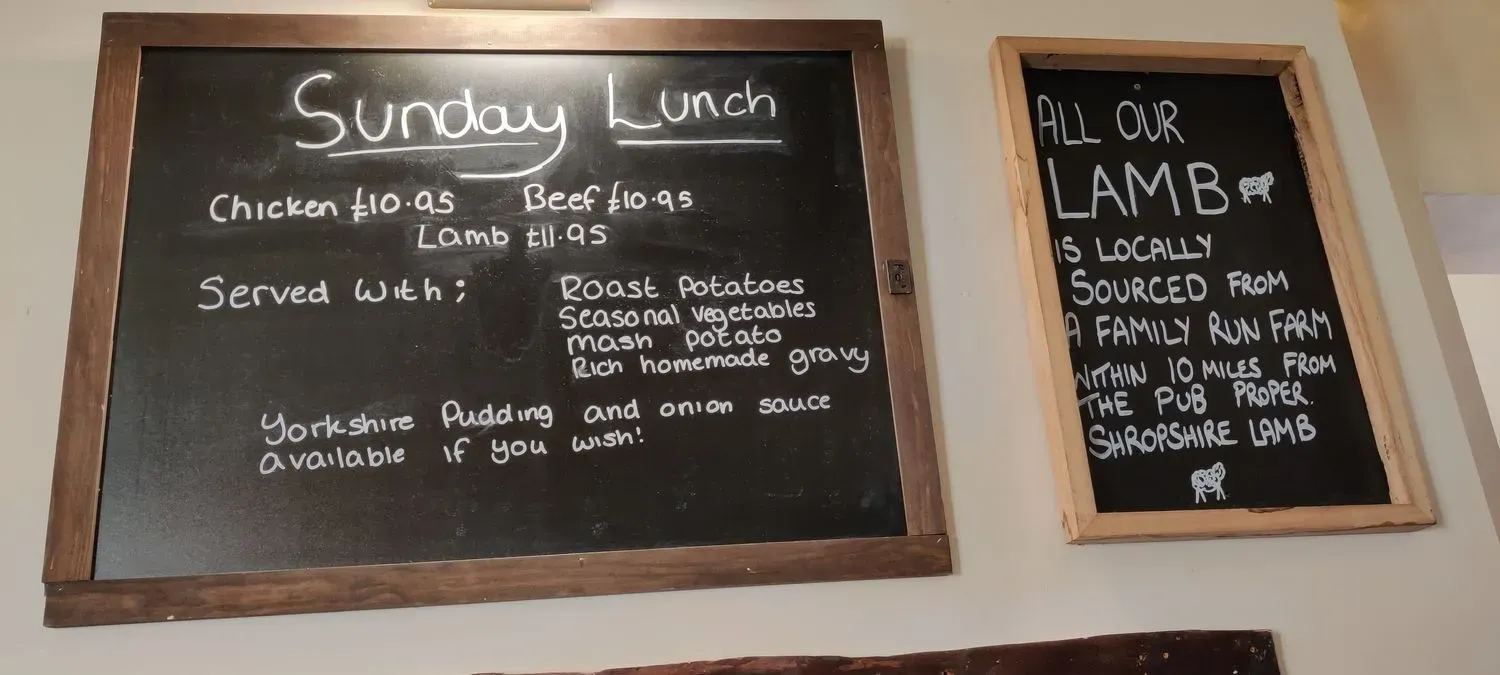 Sunday Lunch
Chicken £10.95 Beef £10.95
Lamb £11.95
Served with; Roast Potatoes
Seasonal vegetables
mash potato
Rich homemade gravy
Yorkshire Pudding and onion sauce
available if you wish!
ALL OUR
LAMB
IS LOCALLY
SOURCED FROM
A FAMILY RUN FARM
WITHIN 10 MILES FROM
THE PUB PROPER.
SHROPSHIRE LAMB